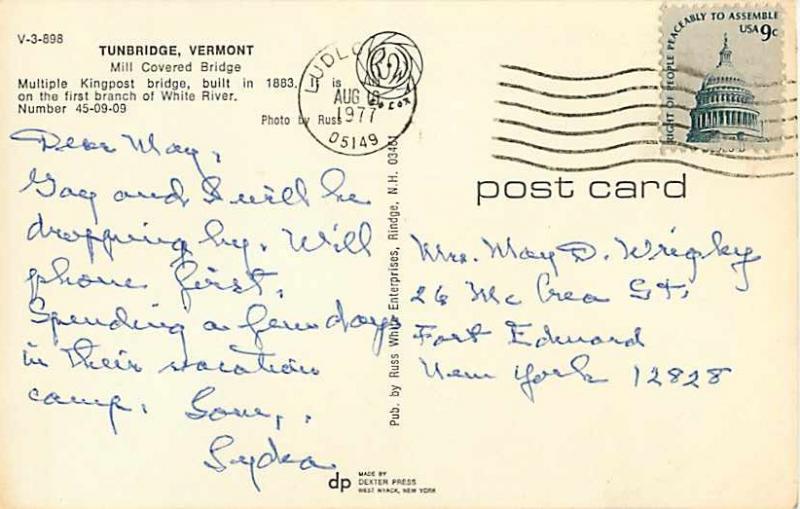 V-3-898
TUNBRIDGE, VERMONT
Mill Covered Bridge
Multiple Kingpost bridge, built in 1883. It is
on the first branch of White River.
Number 45-09-09
Photo by Russ
LUDLO
AUG
1977
05149
RIGHT OF PEOPLE PEACEABLY TO ASSEMBLE
USA 9c
post card
Dear May,
Gay and I will be
dropping by. Will
phone first.
Spending a few days
in their vacation
camp. Love,
Lydia
Pub. by Russ White Enterprises, Rindge, N.H. 03461
Mrs. May D. Wrigley
26 Mc Crea St.
Fort Edward
New York 12828
dp
MADE BY
DEXTER PRESS
WEST NYACK, NEW YORK